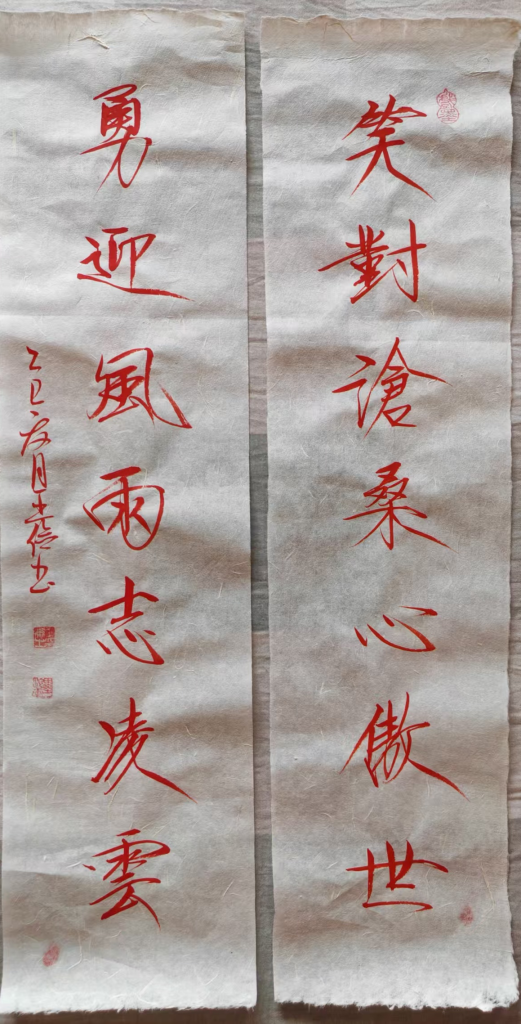 笑對滄桑心傲世
勇迎風雨志凌雲
乙巳夏月